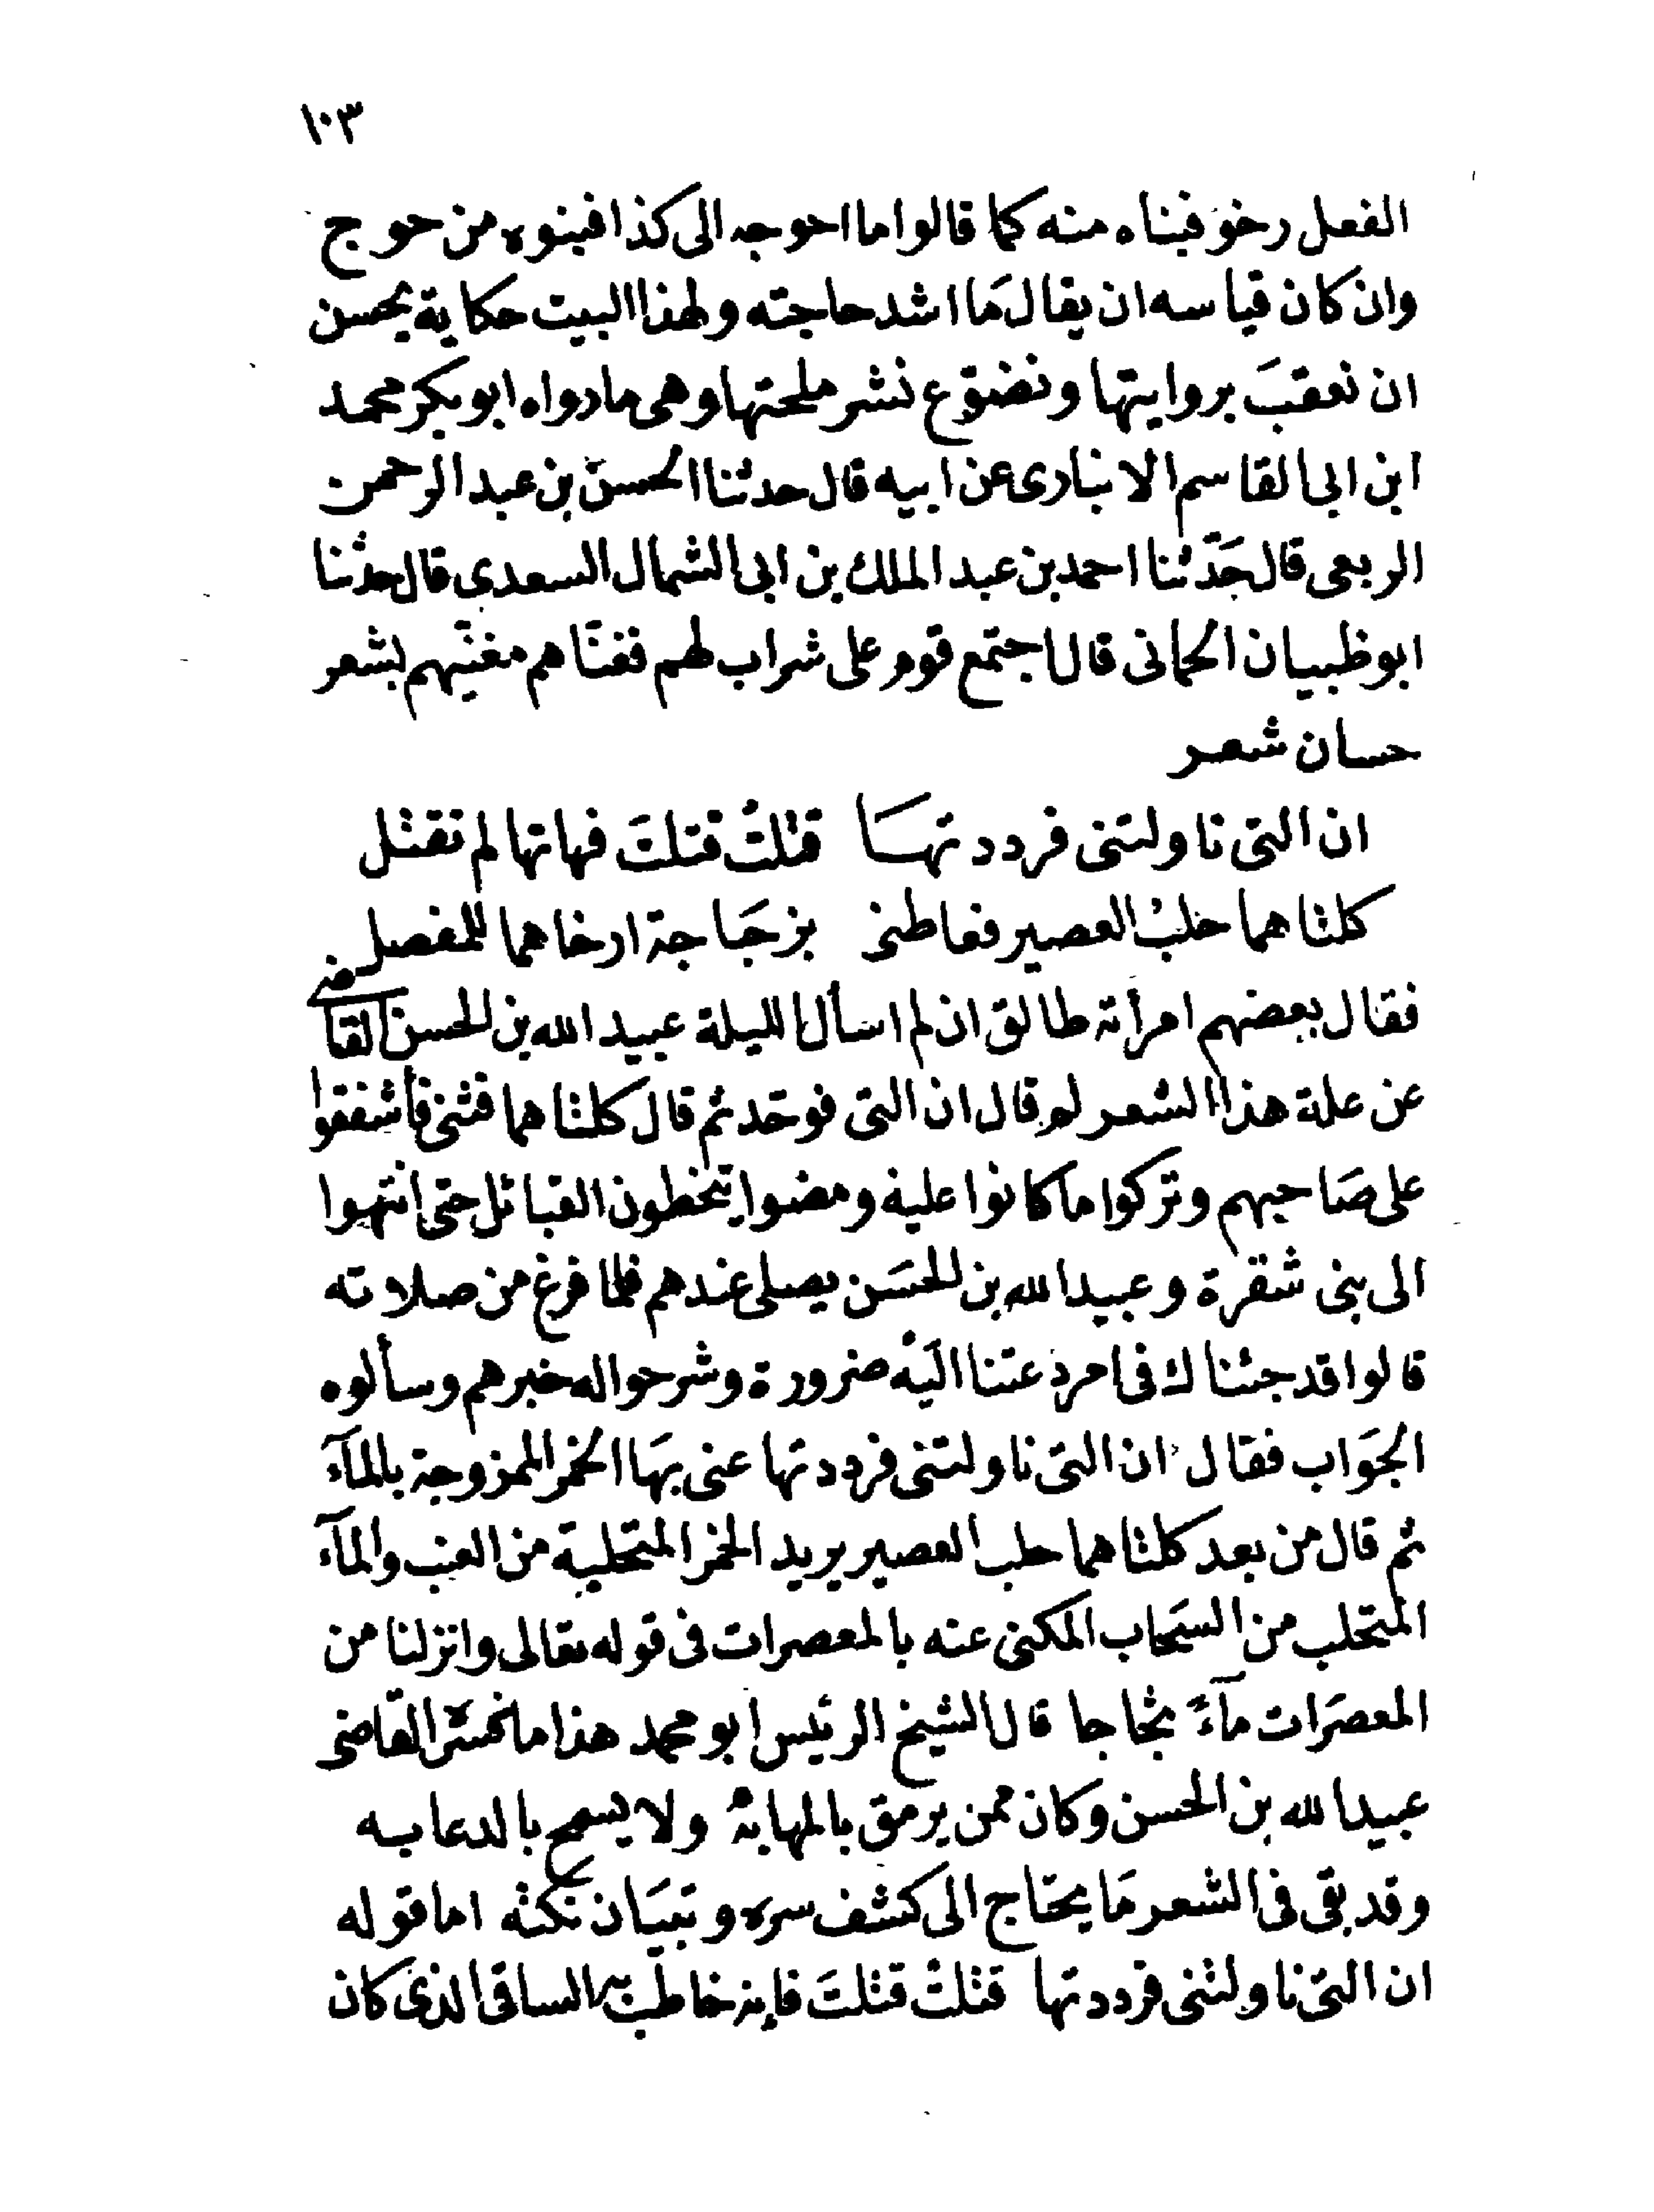 ١٠٣
الفعل رخو فبناه منه كما قالوا ما احوجه الى كذا فبنوه من حوج
وان كان قياسه ان يقال مَا اشد حاجته ولهذا البيت حكاية يحسن
ان نعقبَ بروايتها ونضوّع نشر ملحتها وهى ما رواه ابو بكر محمد
ابن ابى القاسم الانبارى عن ابيه قال حدثنا الحسن بن عبد الرحمن
الربعى قال حَدّثنا احمد بن عبد الملك بن ابى الشمال السعدى قال حدثنا
ابو ظبيان الحمانى قال اجتمع قوم على شراب لهم فغنّاهم مغنّيهم بشعر
حسان شعر
ان التى ناولتنى فرددتهَا قتلتْ قتلتَ فهاتها لم تقتل
كلتاهما حلبُ العصير فعاطنى بزجَاجة ارخاهما للمفصل
فقال بعضهم امرأته طالق ان لم اسأل الليلة عبيد الله بن الحسن القاضى
عن علة هذا الشعر لم قال ان التى فوحّد ثم قال كلتاهما فثنى فأشفقوا
على صَاحبهم وتركوا ما كانوا عليه ومضوا يتخطون القبائل حتى انتهوا
الى بنى شقرة وعبيد الله بن الحسَن يصلى عندهم فلما فرغ من صلاته
قالوا قد جئناك فى امر دعتنا اليْه ضرورة وشرحوا له خبرهم وسألوه
الجوَاب فقال ان التى ناولتنى فرددتها عنى بهَا الخمر الممزوجة بالمآء
ثم قال من بعد كلتاهما حلب العصير يريد الخمر المتحلبة من العنب والمآء
المتحلب من السحَاب المكنى عنه بالمعصرات فى قوله تعالى وانزلنا من
المعصرَات مآءً ثجاجا قال الشيخ الرئيس ابو محمد هذا ما فسّره القاضى
عبيد الله بن الحسن وكان ممن يرمق بالمهابة ولا يسمح بالدعابه
وقد بقى فى الشعر مَا يحتاج الى كشف سره وتبيَان نكته اما قوله
ان التى ناولتنى فرددتها قتلتْ قتلتَ فإنه خاطب به الساقى الذى كان